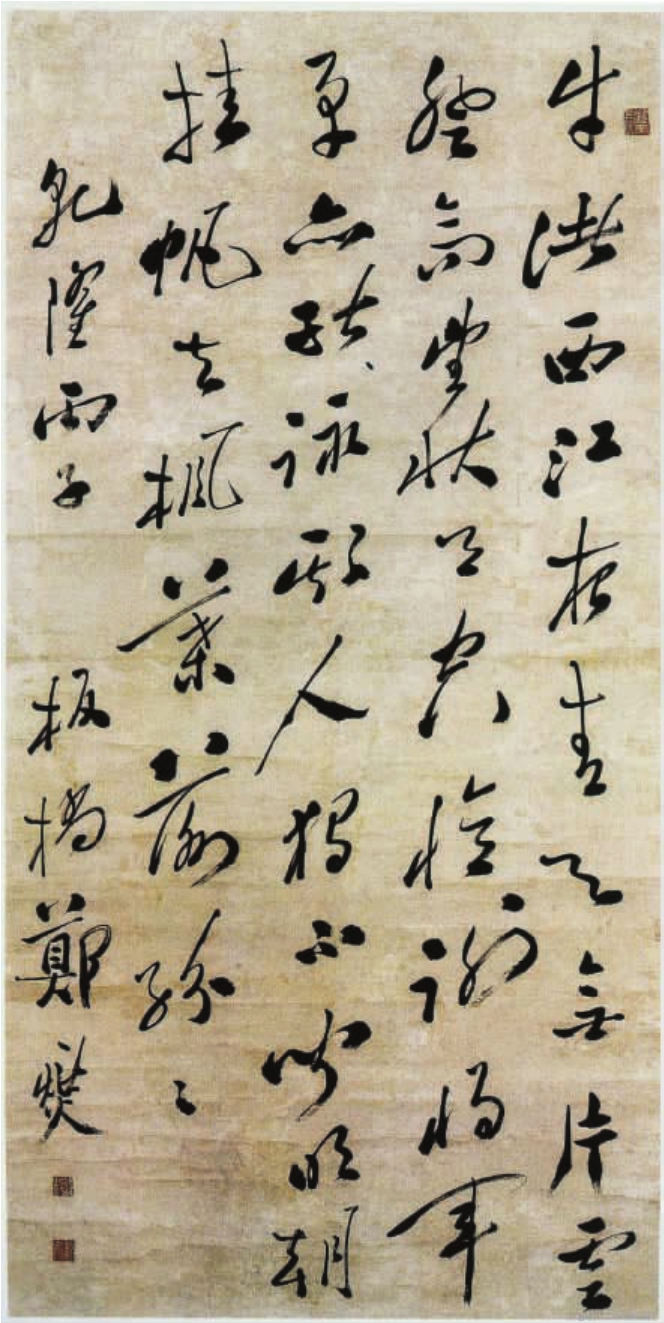 牛渚西江夜青天無片雲
登高望秋月空憶謝將軍
亦詠斯人獨不聞明朝
挂帆去楓葉落紛々
乾隆丙子 板橋鄭燮